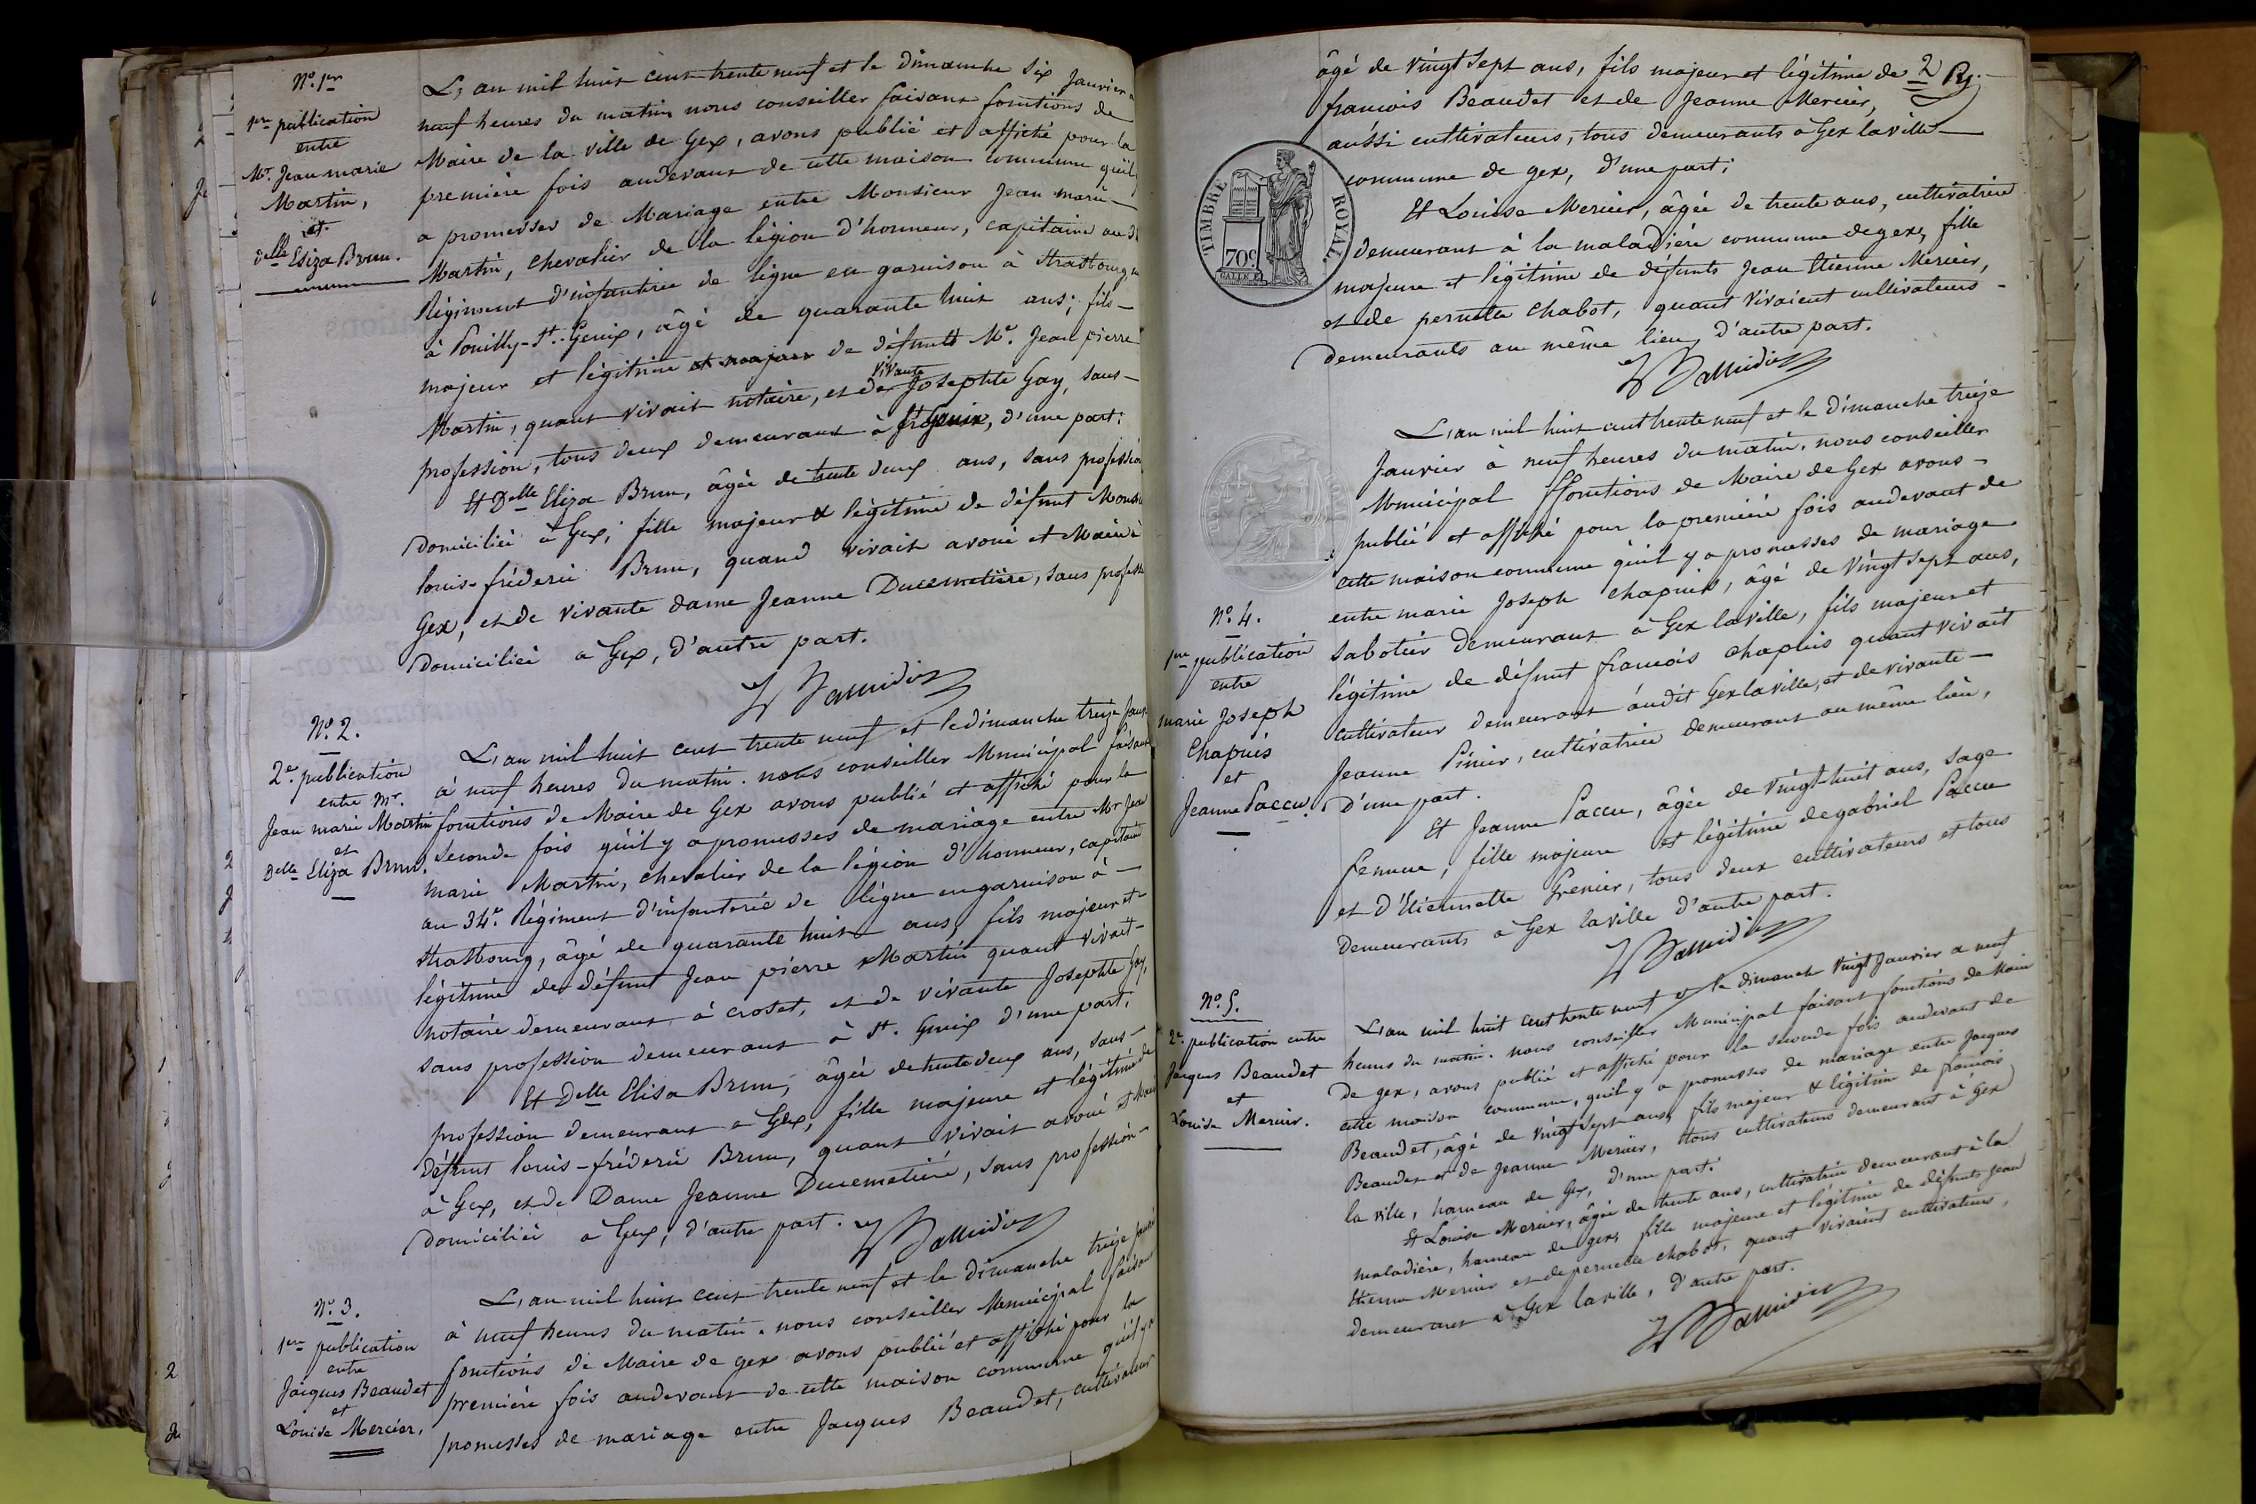 N.° 1.er
1.re publication
entre
M.r Jean marie
Martin,
et
d.elle Eliza Brun.
L'an mil huit cent trente neuf et le dimanche six Janvier à
neuf heures du matin nous conseiller faisant fonctions de
Maire de la ville de Gex, avons publié et affiché pour la
première fois audevant de cette maison commune qu'il y
a promesses de Mariage entre Monsieur Jean marie
Martin, chevalier de la légion d'honneur, capitaine au
Régiment d'infanterie de ligne en garnison à Strasbourg
à Pouilly-St.-Genix, âgé de quarante huit ans; fils
majeur et légitime et majeur de défunts M.r Jean pierre
Martin, quant vivait notaire, et de vivante Josephte Gay, sans
profession, tous deux demeurant à St Genix, d'une part.
Et D.elle Eliza Brun, âgée de trente deux ans, sans profession
domiciliée à Gex, fille majeur & légitime de défunt Monsieur
louis-fréderic Brun, quand vivait avoué et Maire à
Gex, et de vivante dame Jeanne Ducemetière, sans profession
domiciliée à Gex, d'autre part.
N.° 2.
2.e publication
entre M.r
Jean marie Martin
et
D.elle Eliza Brun.
L'an mil huit cent trente neuf et le dimanche treize Janvier
à neuf heures du matin. nous conseiller Municipal faisant
fonctions de Maire de Gex avons publié et affiché pour la
seconde fois qu'il y a promesses de mariage entre M.r Jean
marie Martin, chevalier de la légion d'honneur, capitaine
au 34.e Régiment d'infanterie de ligne en garnison à
Strasbourg, âgé de quarante huit ans, fils majeur et
légitime de défunt Jean pierre Martin quant vivait
notaire demeurant à croset, et de vivante Josephte Gay,
sans profession demeurant à St. Genix d'une part.
Et D.elle Elisa Brun, âgée de trente deux ans, sans
profession demeurant à Gex, fille majeure et légitime de
défunt louis-fréderic Brun, quant vivait avoué et Maire
à Gex, et de Dame Jeanne Ducemetière, sans profession
domiciliée à Gex, d'autre part.
N.° 3.
1.re publication
entre
Jacques Beaudet
et
Louise Mercier.
L'an mil huit cent trente neuf et le dimanche treize janvier
à neuf heures du matin. nous conseiller Municipal faisant
fonctions de Maire de gex avons publié et affiché pour la
première fois audevant de cette maison commune qu'il y a
promesses de mariage entre Jacques Beaudet, cultivateur
2
âgé de vingt sept ans, fils majeur et légitime de
francois Beaudet et de Jeanne Mercier,
aussi cultivateurs, tous demeurants à Gex laville
commune de gex, d'une part;
Et Louise Mercier, âgée de trente ans, cultivatrice
demeurant à la maladière commune de gex, fille
majeure et légitime de défunts Jean Etienne Mercier,
et de pernette Chabot, quant vivaient cultivateurs
demeurants au même lieu, d'autre part.
TIMBRE ROYAL
70c
N.° 4.
1.re publication
entre
marie Joseph
Chapuis
et
Jeanne Paccu.
L'an mil huit cent trente neuf et le dimanche treize
Janvier à neuf heures du matin. nous conseiller
Municipal ffonctions de Maire de Gex avons
publié et affiché pour la première fois audevant de
cette maison commune qu'il y a promesses de mariage
entre marie Joseph Chapuis, âgé de vingt sept ans,
sabotier demeurant à Gex laville, fils majeur et
légitime de défunt francois chapuis quant vivait
cultivateur demeurant audit Gex laville, et de vivante
Jeanne Pinier, cultivatrice demeurant au même lieu,
d'une part.
Et Jeanne Paccu, âgée de vingt-huit ans, sage
femme, fille majeure et légitime de gabriel Paccu
et d'Etiennette Grenier, tous deux cultivateurs et tous
demeurants à Gex laville d'autre part.
N.° 5.
2.e publication entre
Jacques Beaudet
et
Louise Mercier.
L'an mil huit cent trente neuf & le dimanche vingt Janvier a neuf
heures du matin. nous conseiller Municipal faisant fonctions de Maire
de gex, avons publié et affiché pour la seconde fois audevant de
cette maison commune, qu'il y a promesses de mariage entre Jacques
Beaudet, âgé de vingt sept ans, fils majeur & légitime de francois
Beaudet et de Jeanne Mercier, tous cultivateurs demeurant à Gex
la ville, hameau de Gex, d'une part.
Et Louise Mercier, âgée de trente ans, cultivatrice demeurant à la
maladière, hameau de gex, fille majeure et légitime de défunts Jean
Etienne Mercier et de pernette chabot, quant vivaient cultivateurs,
demeurant à Gex laville, d'autre part.